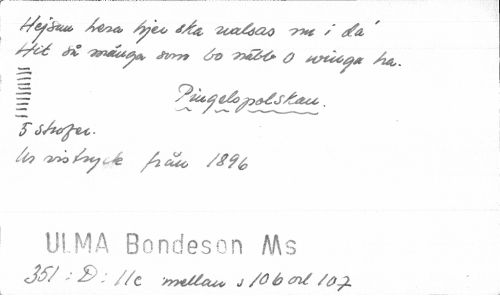 Hejsan hera hjer ska valsas nu i da'
Hit så många som bo nåbb o winga ha.
Pingelspolskan.
5 strofer.
Ur vistryck från 1896
ULMA Bondeson Ms
351 : D : 11c mellan s 106 och 107